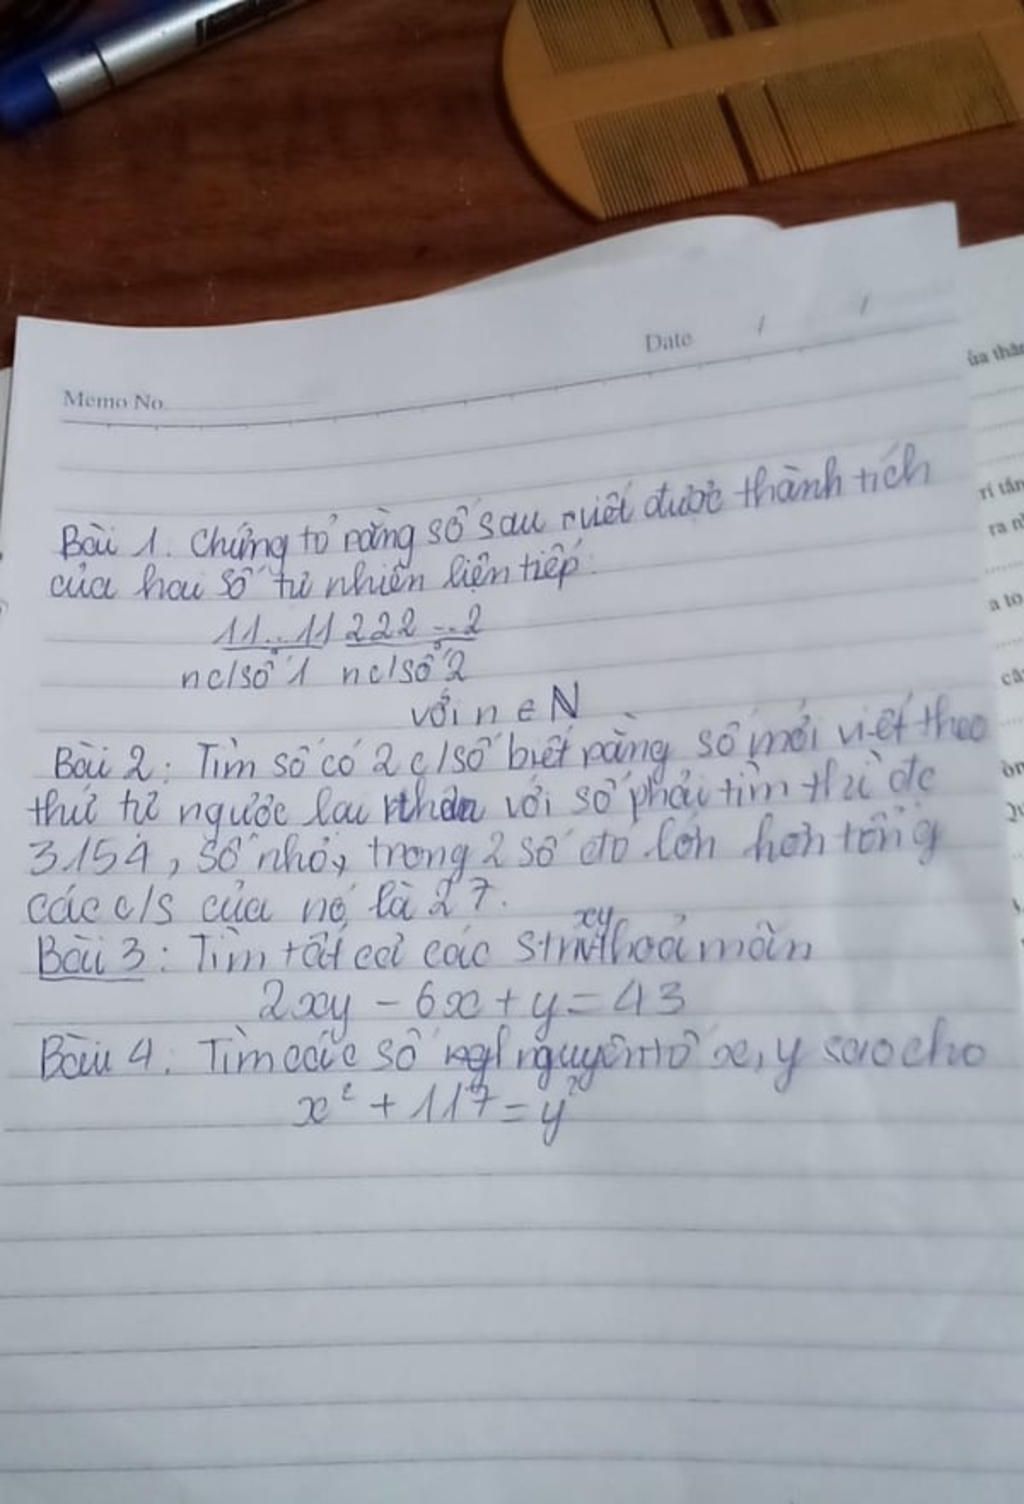 Date / /
Memo No.
Bài 1. Chứng tỏ rằng số sau viết được thành tích
của hai số tự nhiên liên tiếp:
11...11 222...2
n c/số 1 n c/số 2
với n ∈ N
Bài 2: Tìm số có 2 c/số biết rằng số mới viết theo
thứ tự ngược lại nhân với số phải tìm thì đc
3154, số nhỏ, trong 2 số đó lớn hơn tổng
các c/s của nó là 27.
xy
Bài 3: Tìm tất cả các stn thoả mãn
2xy - 6x + y = 43
Bài 4. Tìm các số nguyên tố x, y sao cho
x² + 117 = y²
ủa thân
ra n
a to